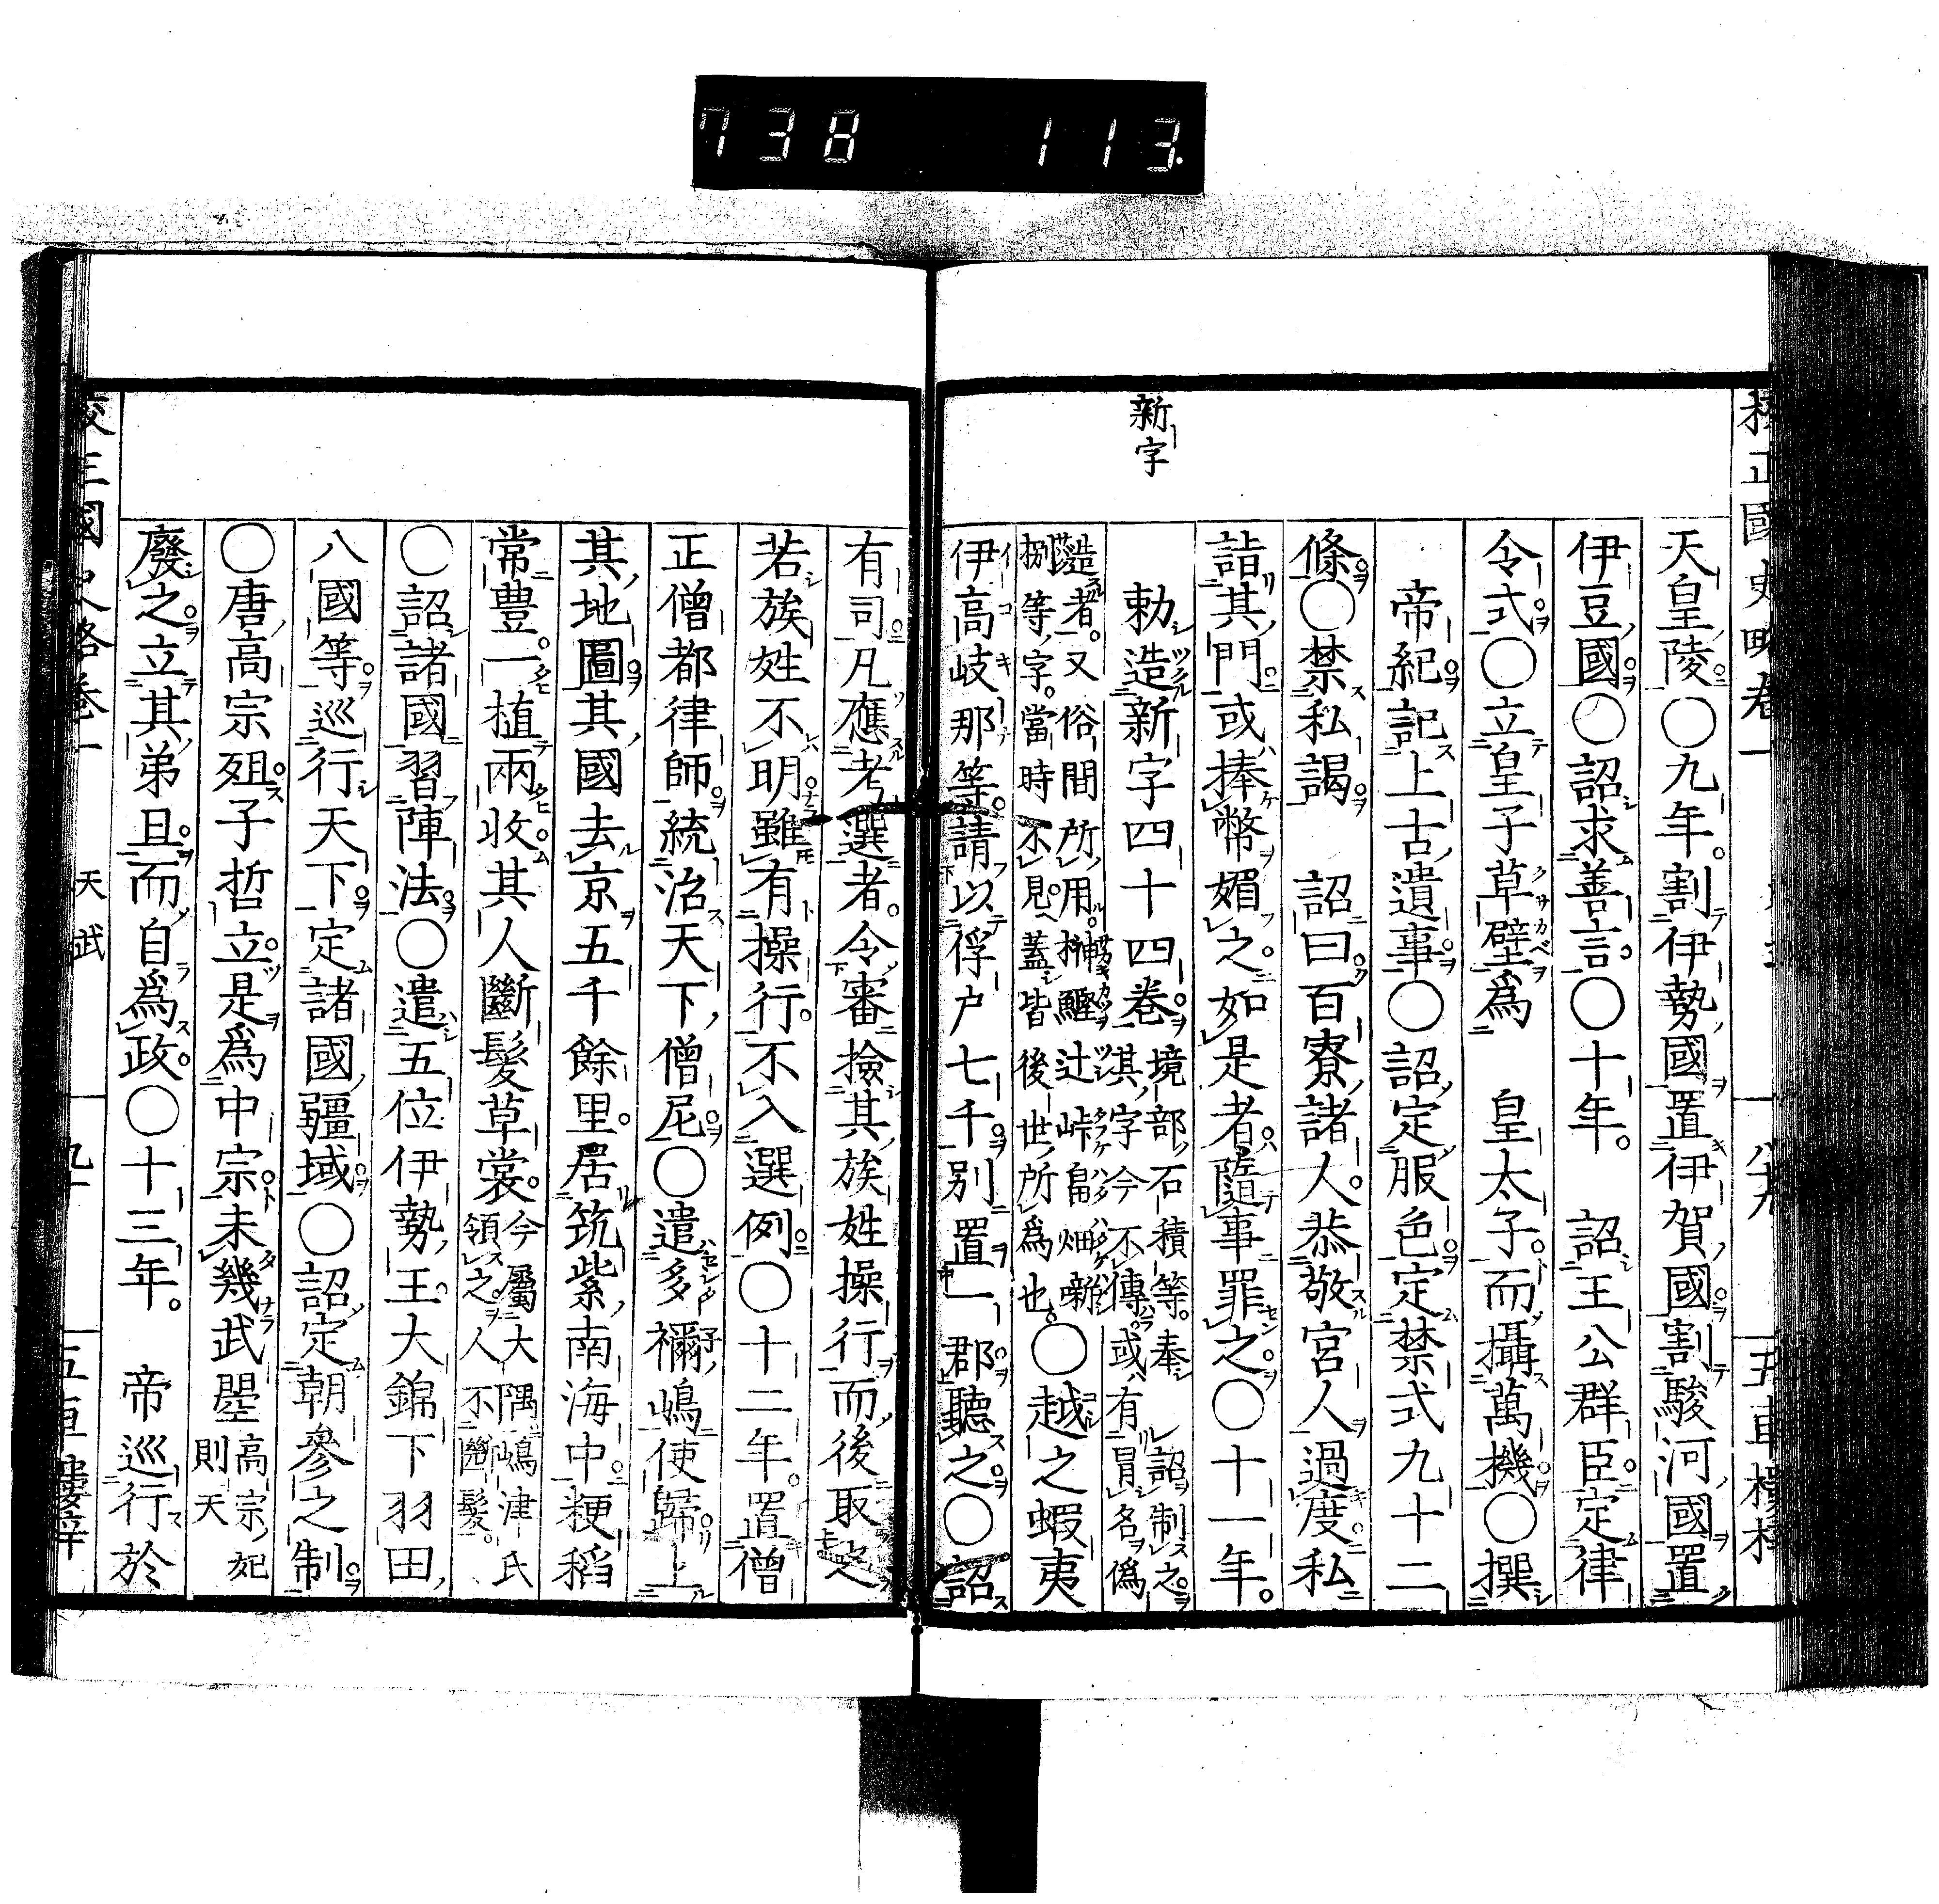 738 113
校正國史略卷一
八十九
五車樓梓
新字
天皇陵○九年。割伊勢國置伊賀國割駿河國置
伊豆國○詔求善言。○十年。 詔王公群臣定律
令式○立皇子草壁爲 皇太子而攝萬機○撰
帝紀記上古遺事○詔定服色定禁式九十二
條○禁私謁 詔曰百寮諸人。恭敬宮人過度私
詣其門或捧幣媚之。如是者隨事罪之。○十一年。
勅造新字四十四卷境部石積等。奉 詔制之
其字今不傳或有冒名僞
造者。又俗間所用。榊鰹辻峠畠畑噺
捌等字。當時不見。蓋皆後世所爲也○越之蝦夷
伊高岐那等請以俘戸七千別置一郡聽之○詔
有司凡應考選者。令審撿其族姓操行而後取之
若族姓不明雖有操行。不入選例○十二年。置僧
正僧都律師統治天下僧尼○遣多禰嶋使歸上
其地圖其國去京五千餘里。居筑紫南海中粳稻
常豊。一植兩收其人斷髮草裳。今屬大隅嶋津氏
領之人不斷髮。
○詔諸國習陣法○遣五位伊勢王大錦下羽田
八國等巡行天下定諸國疆域○詔定朝參之制
○唐高宗殂子哲立是爲中宗未幾武曌高宗妃
則天
廢之立其弟旦而自爲政。○十三年。 帝巡行於
校正國史略卷一
天武
九十
五車樓梓